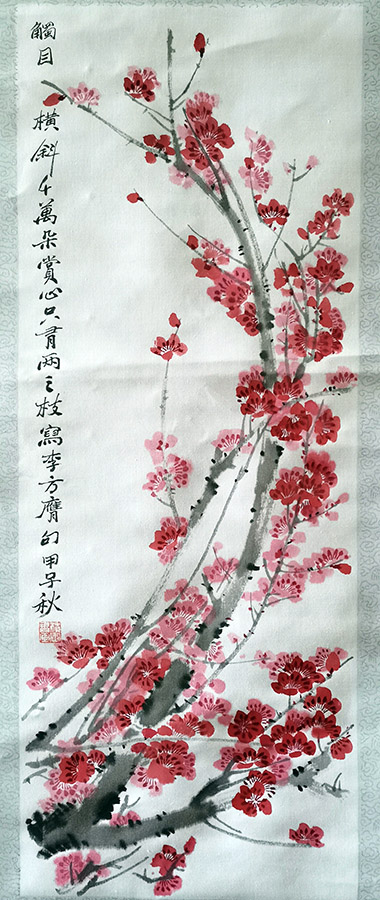 觸目橫斜千萬朵賞心只有兩三枝寫李方膺句甲子秋